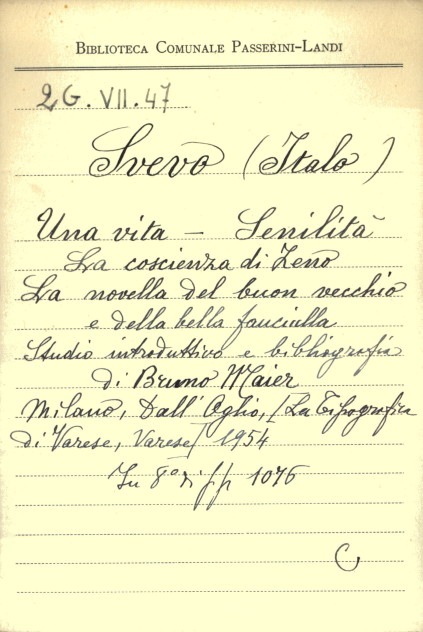 BIBLIOTECA COMUNALE PASSERINI-LANDI
2G. VII. 47
Svevo (Italo)
Una vita – Senilità
La coscienza di Zeno
La novella del buon vecchio
e della bella fanciulla
Studio introduttivo e bibliografia
di Bruno Maier
Milano, Dall'Oglio, [La Tipografica
di Varese, Varese] 1954
In 8° di pp 1076
C